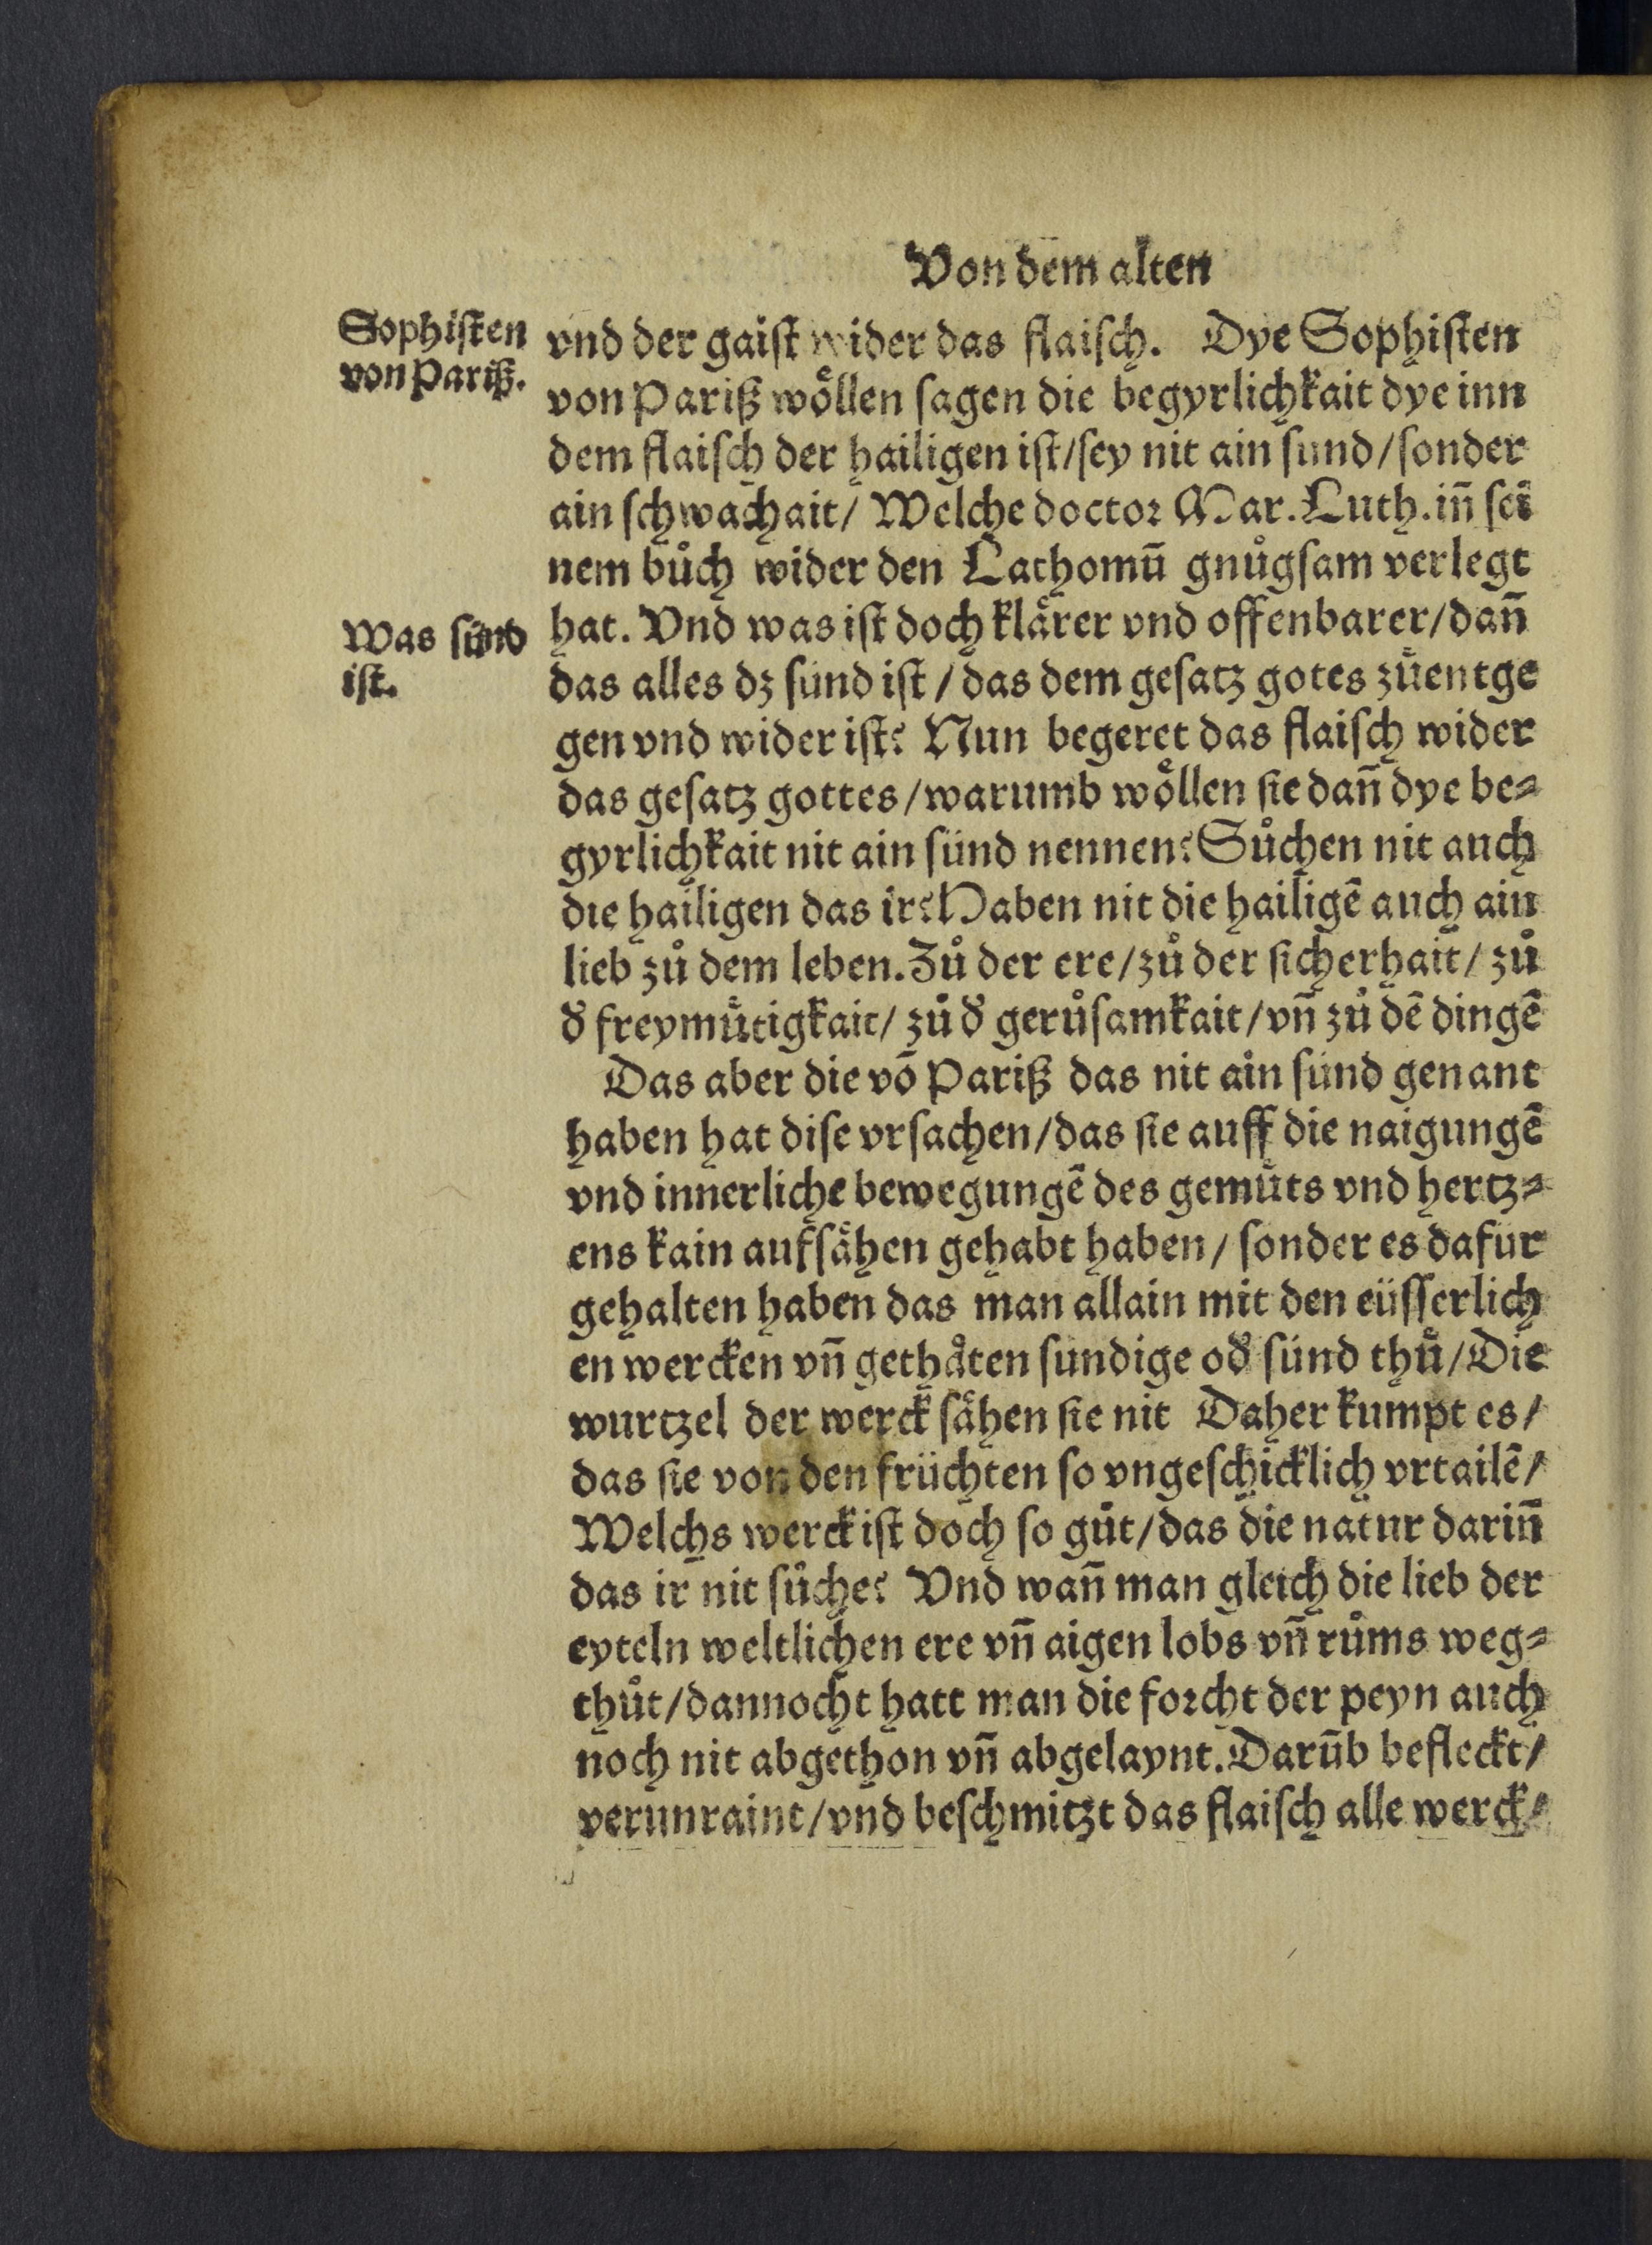 Von dem alten
Sophiſten
von Pariß.
vnd der gaiſt wider das flaiſch. Dye Sophiſten
von Pariß woͤllen ſagen die begyrlichkait dye inn
dem flaiſch der hailigen iſt/ſey nit ain ſund/ſonder
ain ſchwachait/ Welche doctoꝛ Mar. Luth. in̄ ſei
nem buͦch wider den Lathomū gnuͦgſam verlegt
Was ſünd
iſt.
hat. Vnd was iſt doch klaͤrer vnd offenbarer/dan̄
das alles dz ſünd iſt / das dem geſatz gotes zuͦentge
gen vnd wider iſt? Nun begeret das flaiſch wider
das geſatz gottes/warumb woͤllen ſie dan̄ dye be⸗
gyrlichkait nit ain ſünd nennen? Suͦchen nit auch
die hailigen das ir? Haben nit die hailigē auch ain
lieb zuͦ dem leben. Zuͦ der ere/zuͦ der ſicherhait/ zuͦ
ð freymuͤtigkait/ zuͦ ð geruͦſamkait/vn̄ zuͦ dē dingē
Das aber die vō Pariß das nit ain ſünd genant
haben hat diſe vrſachen/das ſie auff die naigungē
vnd innerliche bewegungē des gemuͤts vnd hertz⸗
ens kain aufſaͤhen gehabt haben/ ſonder es dafur
gehalten haben das man allain mit den eüſſerlich
en wercken vn̄ gethaͤten ſundige oð ſünd thuͤ/Die
wurtzel der werck ſaͤhen ſie nit Daher kumpt es/
das ſie von den früchten ſo vngeſchicklich vrtailē/
Welchs werck iſt doch ſo guͦt/das die natur darin̄
das ir nit ſuͦche? Vnd wan̄ man gleich die lieb der
eyteln weltlichen ere vn̄ aigen lobs vn̄ ruͦms weg⸗
thuͦt/dannocht hatt man die foꝛcht der peyn auch
noch nit abgethon vn̄ abgelaynt. Darūb befleckt/
verunraint/vnd beſchmitzt das flaiſch alle werck/